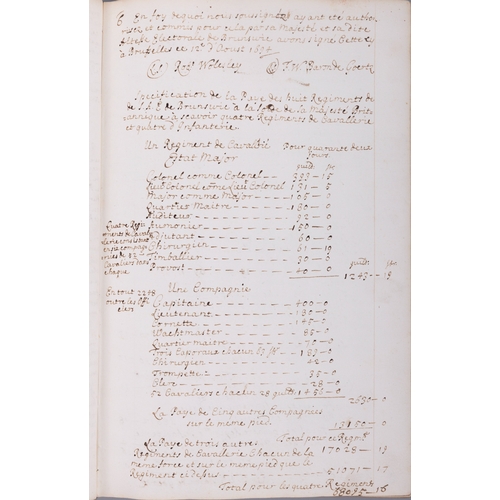 6 En foy de quoi nous soussignés ayant été autho-
risés et commis pour cela par sa Majesté et sa dite
Altesse Electorale de Brunswic avons signé Cette
à Bruxelles ce 12e d'Aoust 1694
Robt Wolesley F. W. Baron de Goertz
Specification de la Paye des huit Regiments de
de S.A.E. de Brunswic à la solde de sa Majesté Brit-
annique à scavoir quatre Regiments de Cavallerie
et quatre d'Infanterie.
Un Regiment de Cavallie Pour quarante deux
jours
Etat Major
Colonel comme Colonel 15
Lieu Colonel come Lieu Colonel 191 - 5
Major comme Major 105 - 0
Quartier Maitre 130 - 0
Auditeur 92 - 0
Aumonier
Adjutant 60 - 0
Chirurgien 10
Timballier 30 - 0
Provost 40 - 0
1243 - 13
Quatre Regi-
ments de Caval-
lerie
Cavaliers dans
chaque
En tout 2248
outre les Offi-
ciers
Une Compagnie
Capitaine 400 - 0
Lieutenant 180 - 0
Cornette 145 - 0
Wachtmaster 85 - 0
Quartier maitre 70 - 0
Trois Caporaux chacun
Chirurgien 42 - 0
Trompette 2 35 - 0
Clerc 28 - 0
52 Cavaliers chacun 28 1456 - 0
2630 - 0
La Paye de Cinq autres Compagnies
sur le meme pied
13150 - 0
Total pour ce Regmt
17028 - 13
La Paye de trois autres
Regiments de Cavallerie Chacun de la
meme force et sur le meme pied que le
Regiment ci dessus 51071 - 17
Total pour les quatre Regiments
16